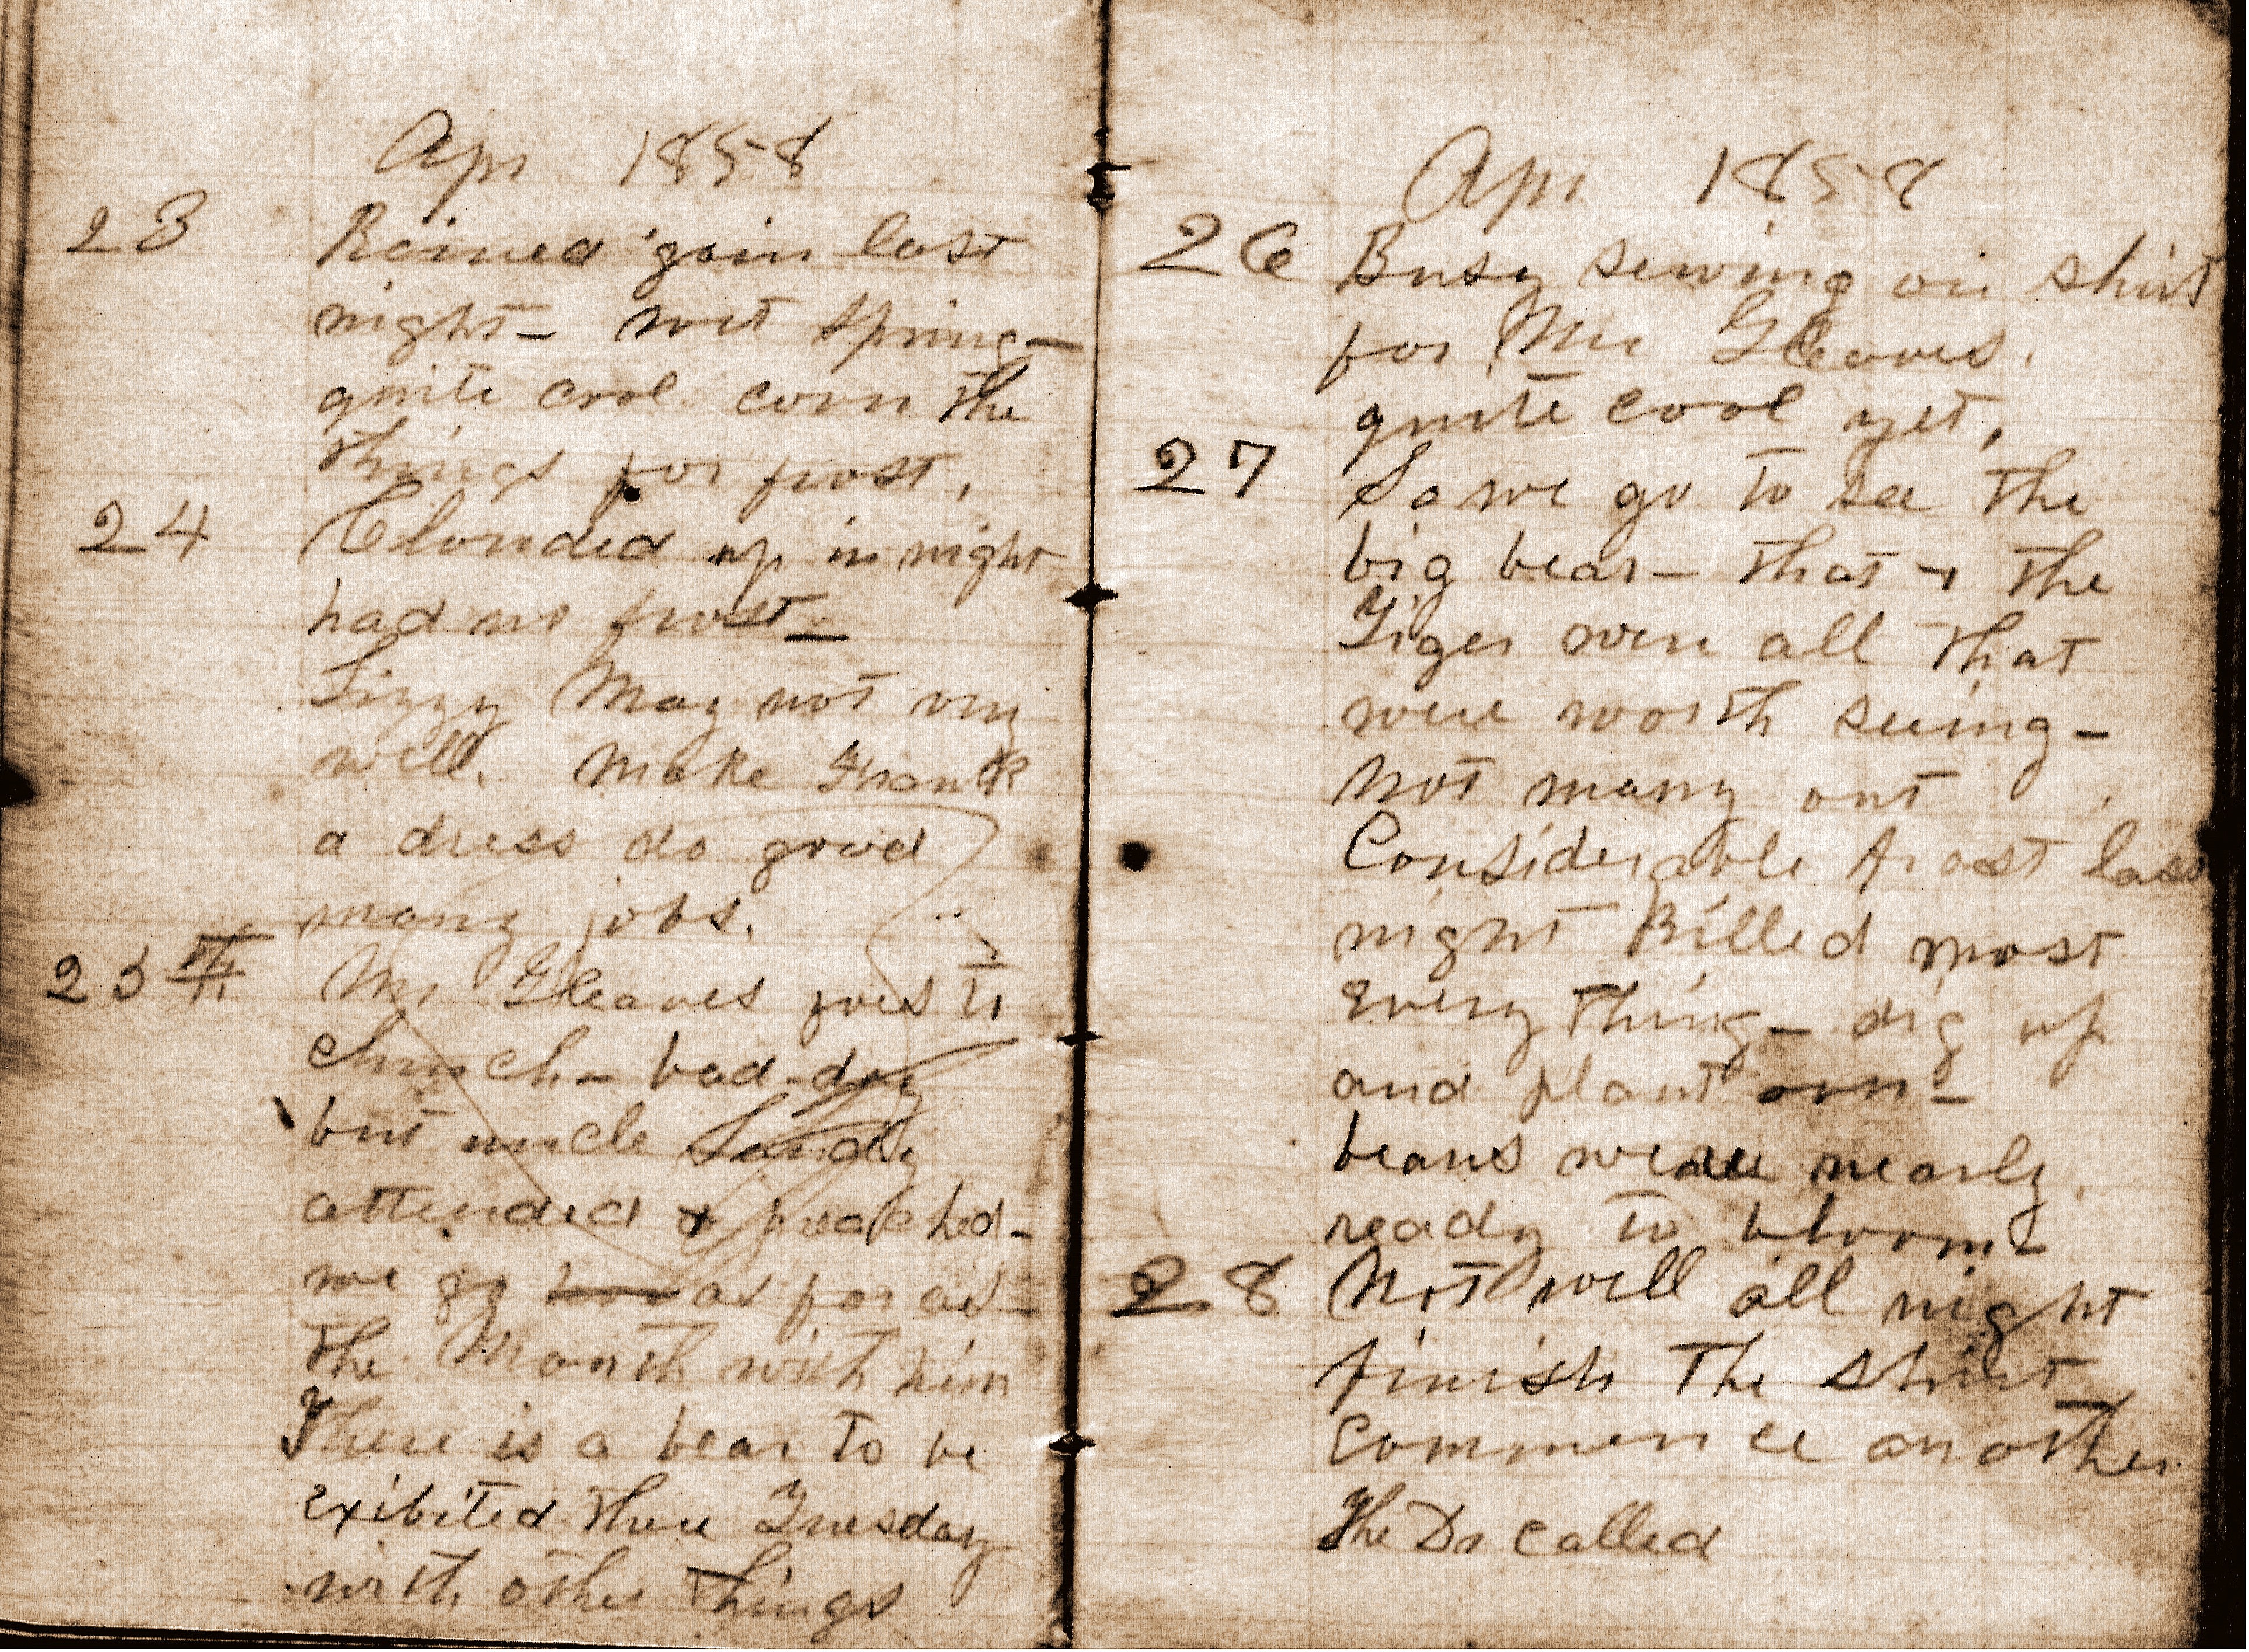 Apr 1858
23 Rained 'gain last
night - wet spring -
quite cool cover the
things for frost.
24 Clouded up in night
had no frost -
Lizzy May not very
well. Make Frank
a dress do good
many jobs.
25th Mr Gleaves goes to
church - bad day
but uncle
attended & preached -
we go as far as
the Month with him
There is a bear to be
exibited there Tuesday
with other things
Apr 1858
26 Busy sewing on shirt
for Mr Gleaves.
quite cool yet.
27 So we go to see the
big bear - that & the
Tiger were all that
were worth seeing -
Not many out
Considerable frost last
night Killed most
every thing - dig up
and plant corn -
beans were nearly
ready to bloom
28 Not well all night
finish the shirt
commence another
The Dr called